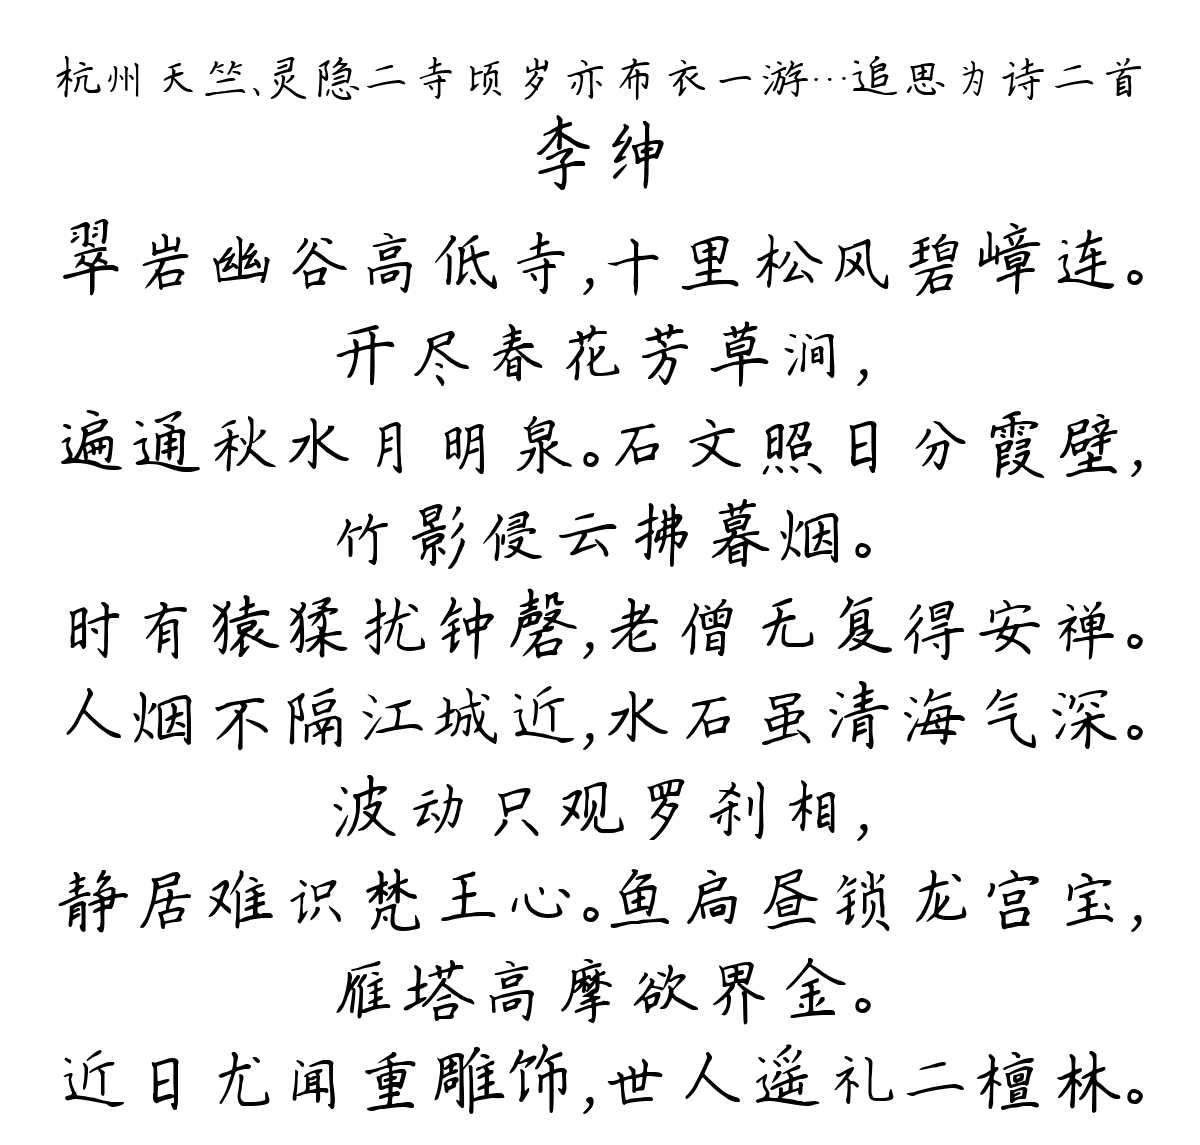 杭州天竺、灵隐二寺顷岁亦布衣一游…追思为诗二首
李绅
翠岩幽谷高低寺,十里松风碧嶂连。
开尽春花芳草涧,
遍通秋水月明泉。石文照日分霞壁,
竹影侵云拂暮烟。
时有猿猱扰钟磬,老僧无复得安禅。
人烟不隔江城近,水石虽清海气深。
波动只观罗刹相,
静居难识梵王心。鱼扃昼锁龙宫宝,
雁塔高摩欲界金。
近日尤闻重雕饰,世人遥礼二檀林。